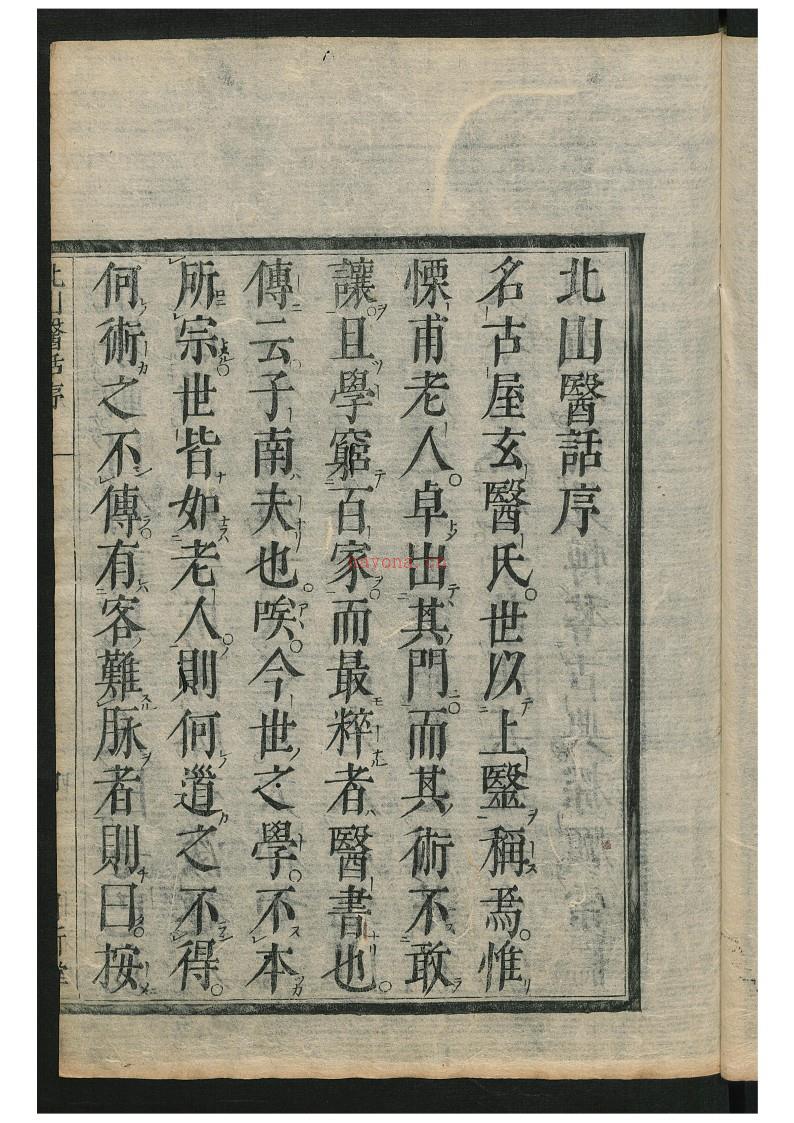 北山醫話序
名古屋玄醫氏世以上毉稱焉惟
慄甫老人卓出其門而其術不敢
讓且學窮百家而最粹者醫書也
傳云子南夫也唉今世之學不本
所宗世皆如老人則何道之不得
何術之不傳有客難脉者則曰按
北山醫話序 一
nayona.cn